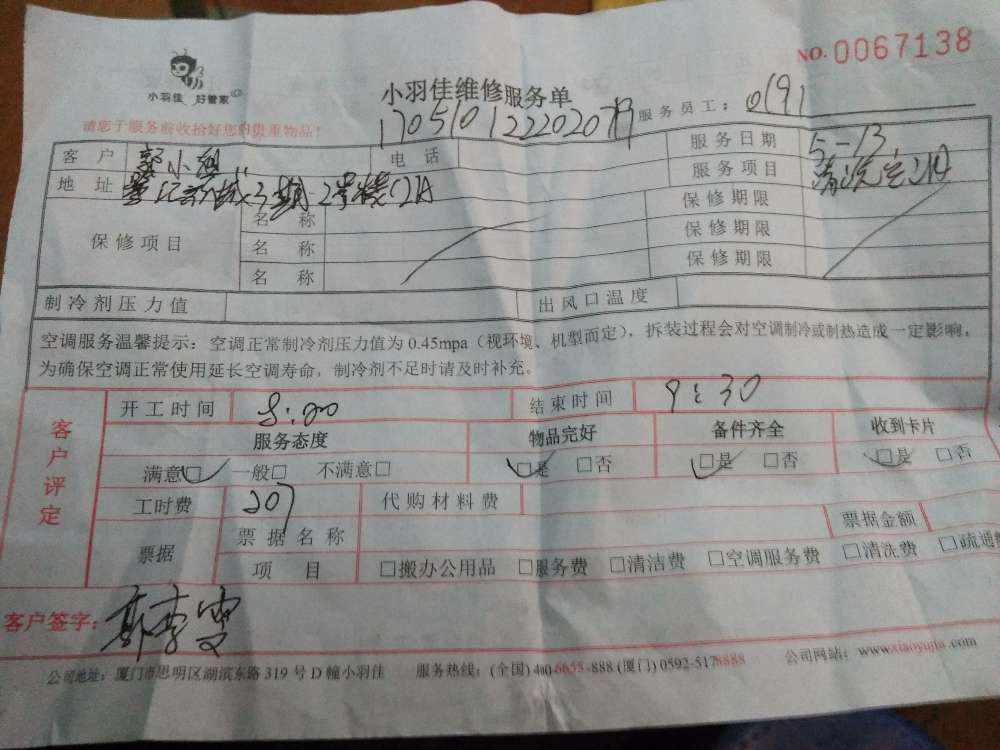 NO. 0067138
小羽佳 好管家
小羽佳维修服务单
服务员工: 0191
请您于服务前收拾好您的贵重物品!
客户 郭小姐 电话 服务日期 5-13
地址 3期 2号楼 服务项目 清洗空调
保修项目 名称 保修期限
名称 保修期限
名称 保修期限
制冷剂压力值 出风口温度
空调服务温馨提示: 空调正常制冷剂压力值为 0.45mpa (视环境、机型而定), 拆装过程会对空调制冷或制热造成一定影响,
为确保空调正常使用延长空调寿命, 制冷剂不足时请及时补充。
客户评定
开工时间 8:00 结束时间 9:30
服务态度 物品完好 备件齐全 收到卡片
满意□ 一般□ 不满意□ □是 □否 □是 □否 □是 □否
工时费 207 代购材料费
票据 票据名称 票据金额
项目 □搬办公用品 □服务费 □清洁费 □空调服务费 □清洗费 □疏通费
客户签字:
公司地址: 厦门市思明区湖滨东路 319 号 D 幢小羽佳 服务热线: (全国) 400-6655-888 (厦门) 0592-5178888 公司网站: www.xiaoyujia.com